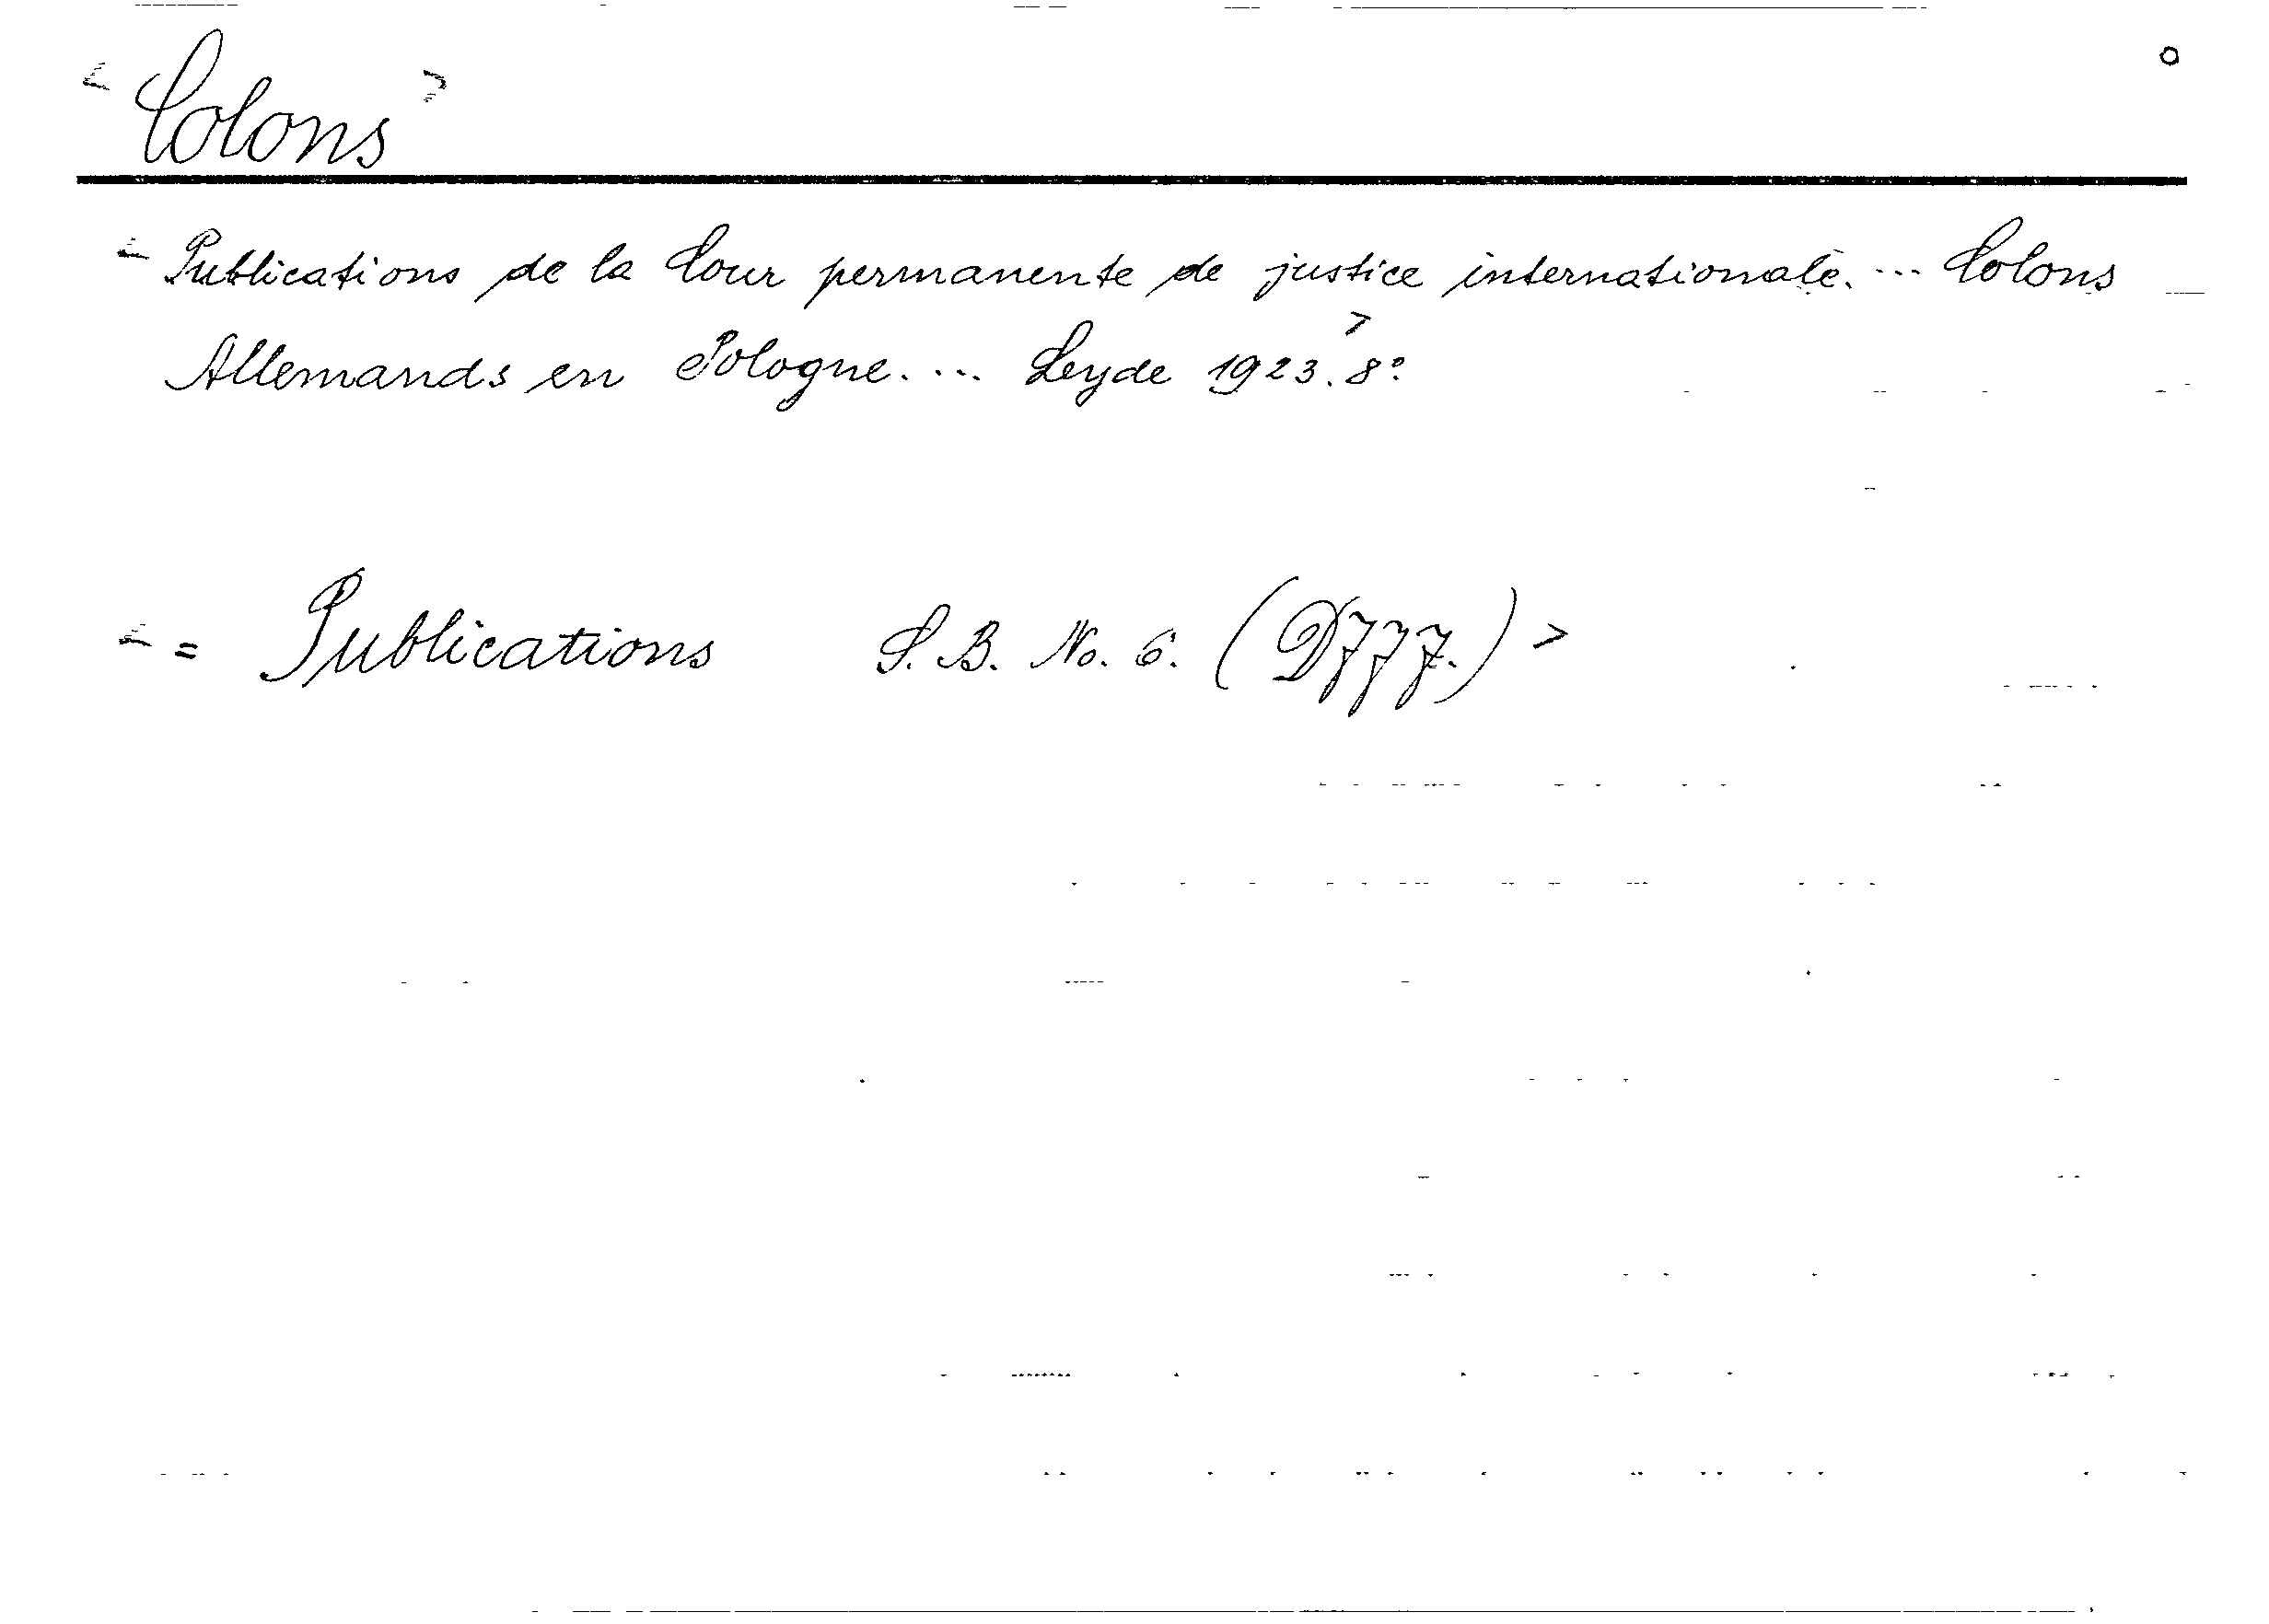 < Colons >
< Publications de la Cour permanente de justice internationale. ... Colons
Allemands en Pologne. ... Leyde 1923. > 8º
< = Publications S. B. No. 6. (D777.) >